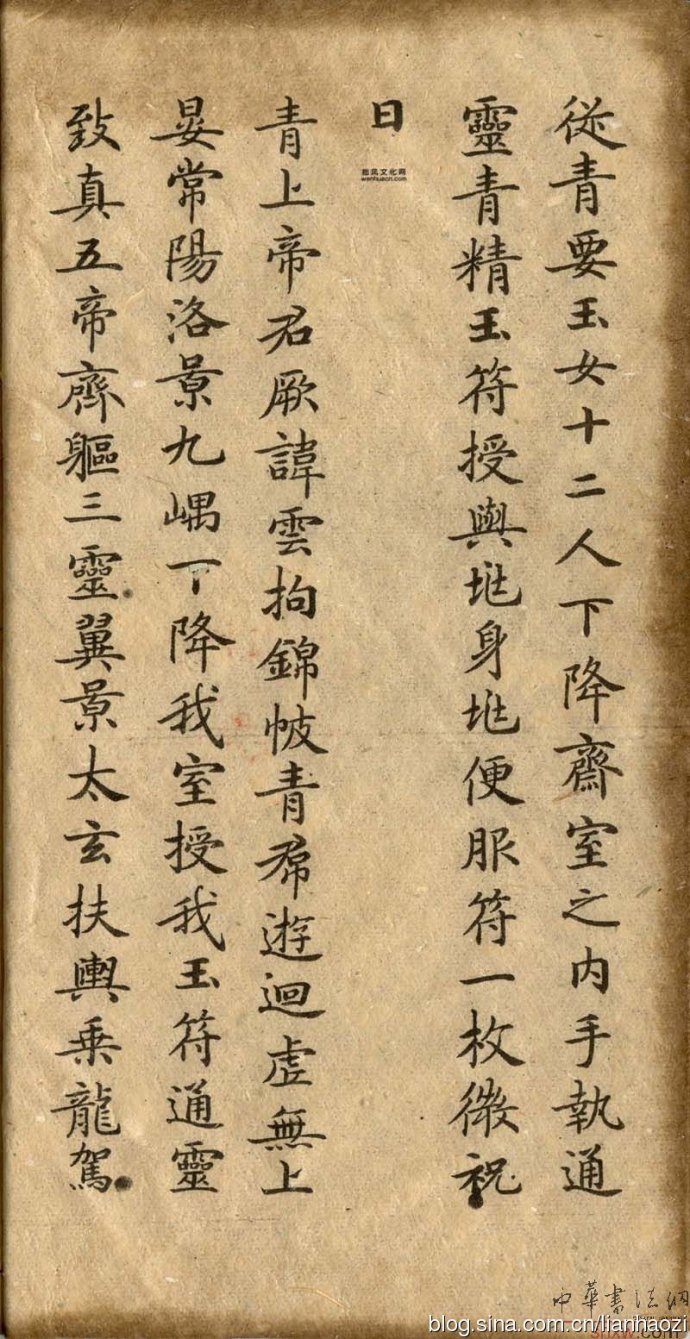 從青要玉女十二人下降齋室之内手執通
靈青精玉符授與兆身兆便服符一枚微祝
曰
青上帝君厥諱雲拘錦帔青帬遊迴虛無上
晏常陽洛景九嵎下降我室授我玉符通靈
致真五帝齊軀三靈翼景太玄扶輿乘龍駕
wenhuacn.com
中華書法網
blog.sina.com.cn/lianhaozi